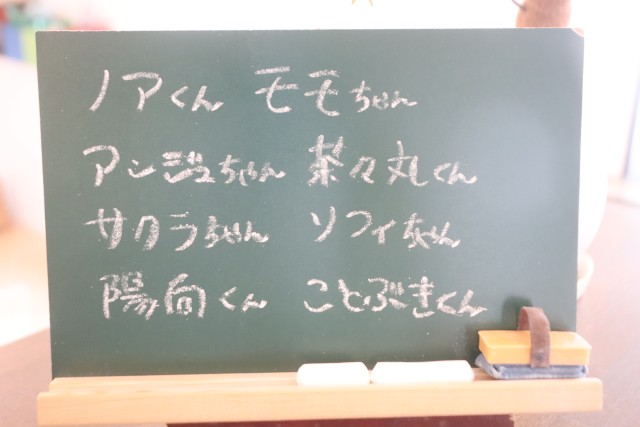 ノアくん モモちゃん
アンジュちゃん 茶々丸くん
サクラちゃん ソフィちゃん
陽向くん ことぶきくん